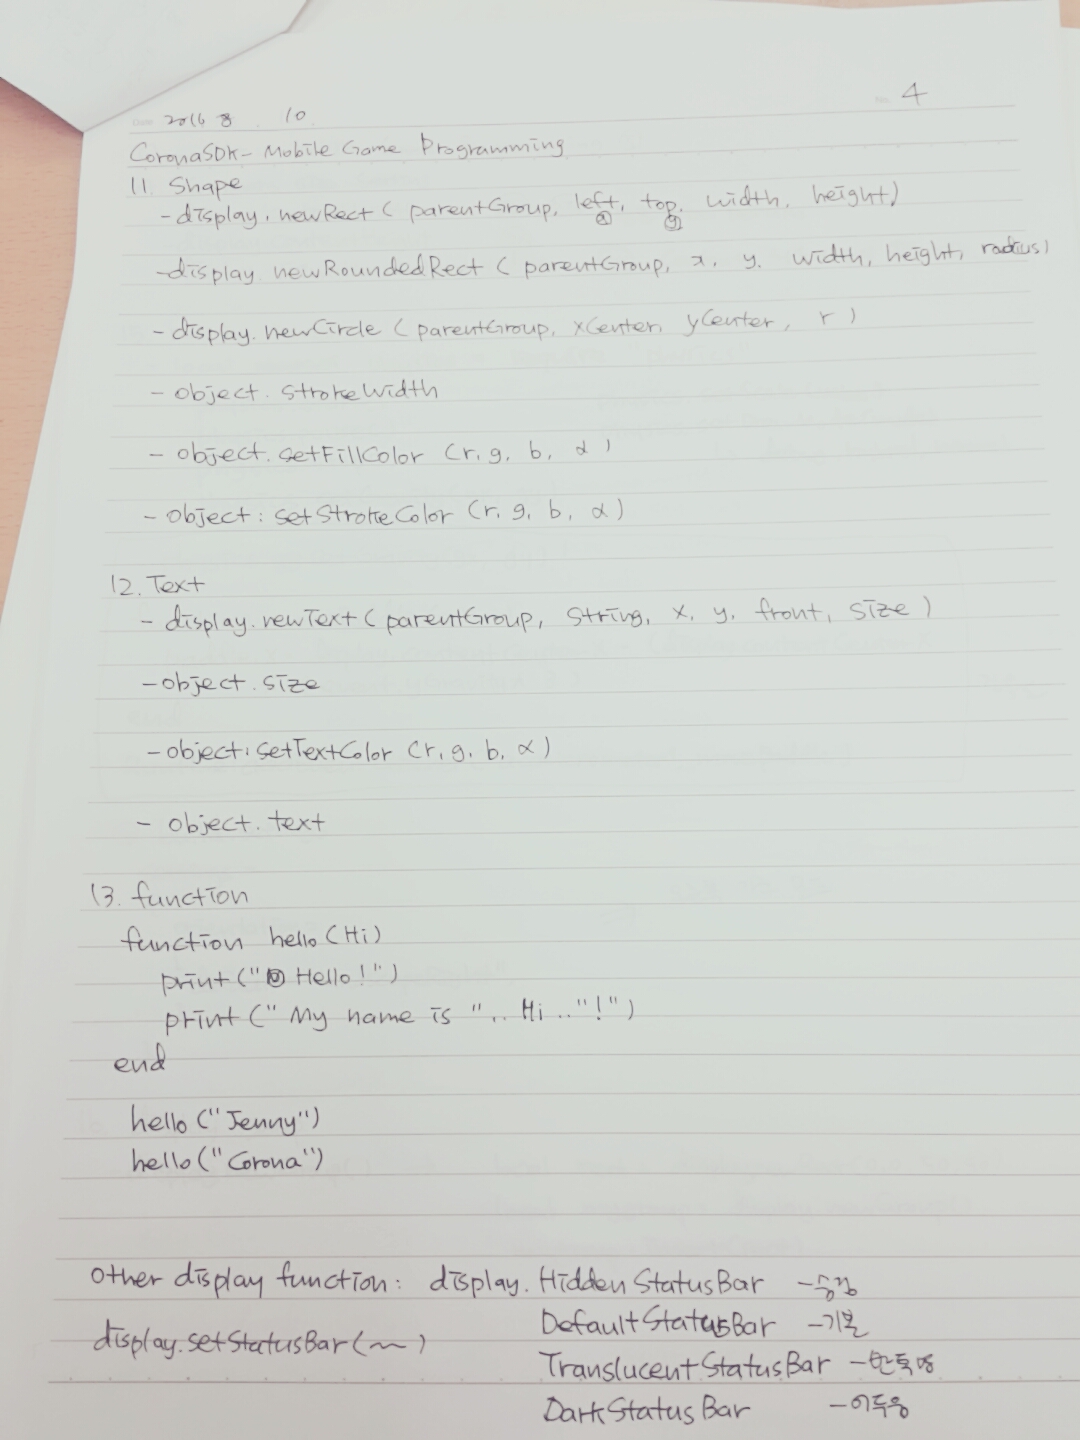 4
Date 2016 8 . 10.
CoronaSDK - Mobile Game Programming
11. Shape
- display.newRect ( parentGroup, left, top, width, height)
ⓧ ⓨ
- display.newRoundedRect ( parentGroup, x, y, width, height, radius)
- display.newCircle ( parentGroup, xCenter, yCenter, r )
- object.strokeWidth
- object.setFillColor (r, g, b, α )
- object : setStrokeColor (r, g, b, α )
12. Text
- display.newText ( parentGroup, String, x, y, front, size )
- object.size
- object : setTextColor (r, g, b, α )
- object.text
13. function
function hello (Hi)
print (" Hello ! ")
print (" My name is " .. Hi .. "!")
end
hello ("Jenny")
hello ("Corona")
Other display function : display.HiddenStatusBar - 숨김
display.setStatusBar(~) DefaultStatusBar - 기본
TranslucentStatusBar - 반투명
DarkStatusBar - 어두움